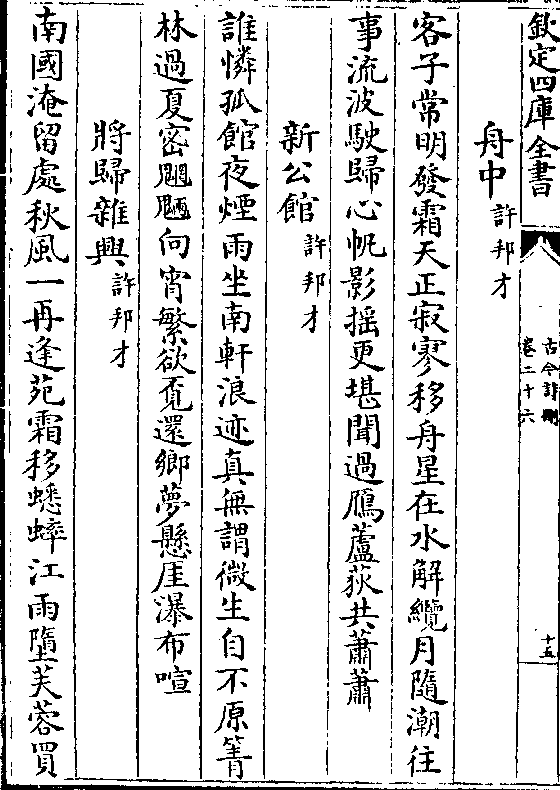 欽定四庫全書
古今詩刪
卷二十六
十五
舟中 許邦才
客子常明發霜天正寂寥移舟星在水解纜月隨潮往
事流波駛歸心帆影揺更堪聞過鴈蘆荻共蕭蕭
新公館 許邦才
誰憐孤館夜煙雨坐南軒浪迹真無謂微生自不原箐
林過夏密魍魎向宵繁欲覔還鄉夢懸厓瀑布喧
將歸雜興 許邦才
南國淹留處秋風一再逢苑霜移蟋蟀江雨墮芙蓉買